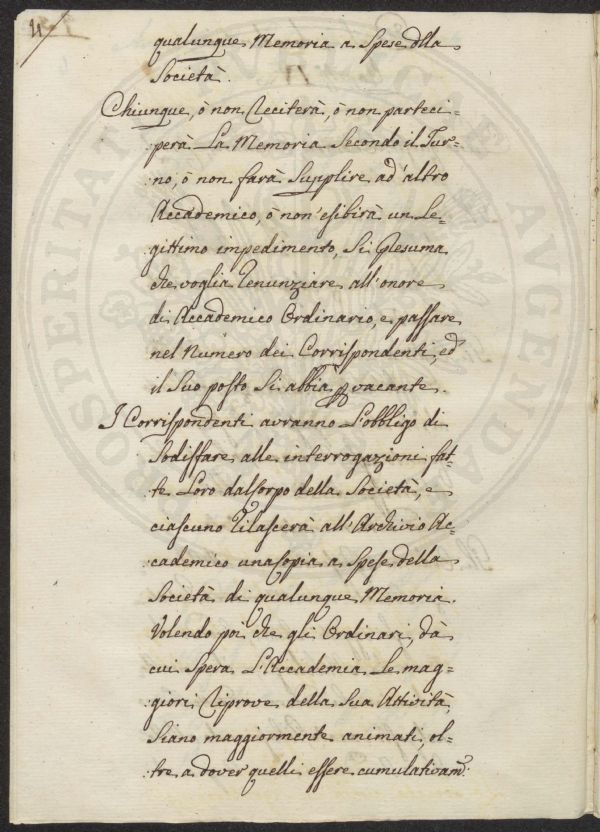 4
qualunque Memoria a Spese della
Società.
Chiunque, ò non reciterà, ò non parteci=
perà La Memoria Secondo il Tur=
no, ò non farà Supplire ad' altro
Accademico, ò non' esibirà un Le=
gittimo impedimento, Si presuma
che voglia renunziare all' onore
di Accademico Ordinario, e passare
nel Numero dei Corrispondenti, ed'
il Suo posto Si abbia p vacante.
I Corrispondenti avranno L'obbligo di
Sodisfare alle interrogazioni fat=
te Loro dal Corpo della Società, e
ciascuno rilascerà all' Archivio Ac=
cademico una Copia a Spese della
Società di qualunque Memoria.
Volendo poi che gli Ordinari, dà
cui Spera L'Accademia Le mag=
giori riprove della Sua Attività,
Siano maggiormente animati, ol=
tre a dover quelli essere cumulativam.
PROSPERITATI PUBLICAE AVGENDAE